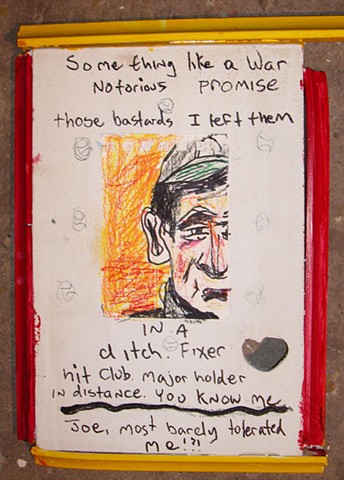 Some thing like a War
Notorious PROMISE
those bastards I left them
IN A
ditch. Fixer
hit Club. Major holder
in distance. You know me
Joe, most barely tolerated
Me!?!